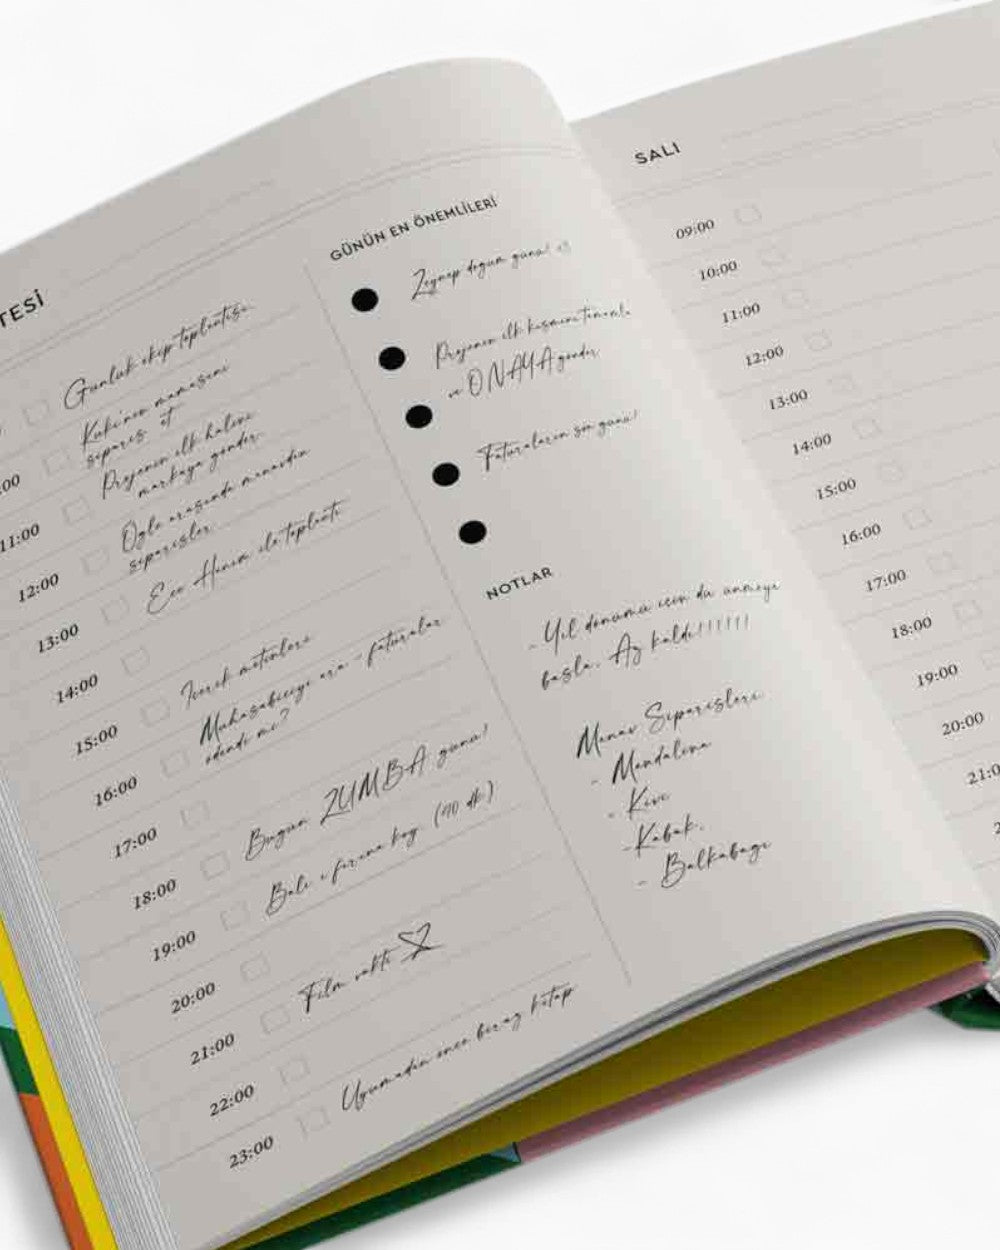 TESİ
Günlük ekip toplantısı
Kuki'nin mamasını
00
sipariş et
Projenin ilk halini
11:00
markaya gönder.
Öğle arasında manavdan
12:00
siparişler
13:00
Ece Hanım ile toplantı
14:00
15:00
İçerik metinleri
16:00
Muhasebeciyi ara - faturalar
ödendi mi?
17:00
18:00
Bugün ZUMBA günü!
19:00
Balı fırına koy. (40 dk.)
20:00
21:00
Film vakti
22:00
23:00
Uyumadan önce biraz kitap
GÜNÜN EN ÖNEMLİLERİ
Zeynep doğum günü!
Projenin ilk kısmını tamamla
ve ONAYA gönder.
Faturaların son günü!
NOTLAR
- Yıl dönümü için düşünmeye
başla. Ay kaldı!!!!!!!
Manav Siparişleri
- Mandalina
- Kivi
- Kabak.
- Balkabağı
SALI
09:00
10:00
11:00
12:00
13:00
14:00
15:00
16:00
17:00
18:00
19:00
20:00
21:0
2